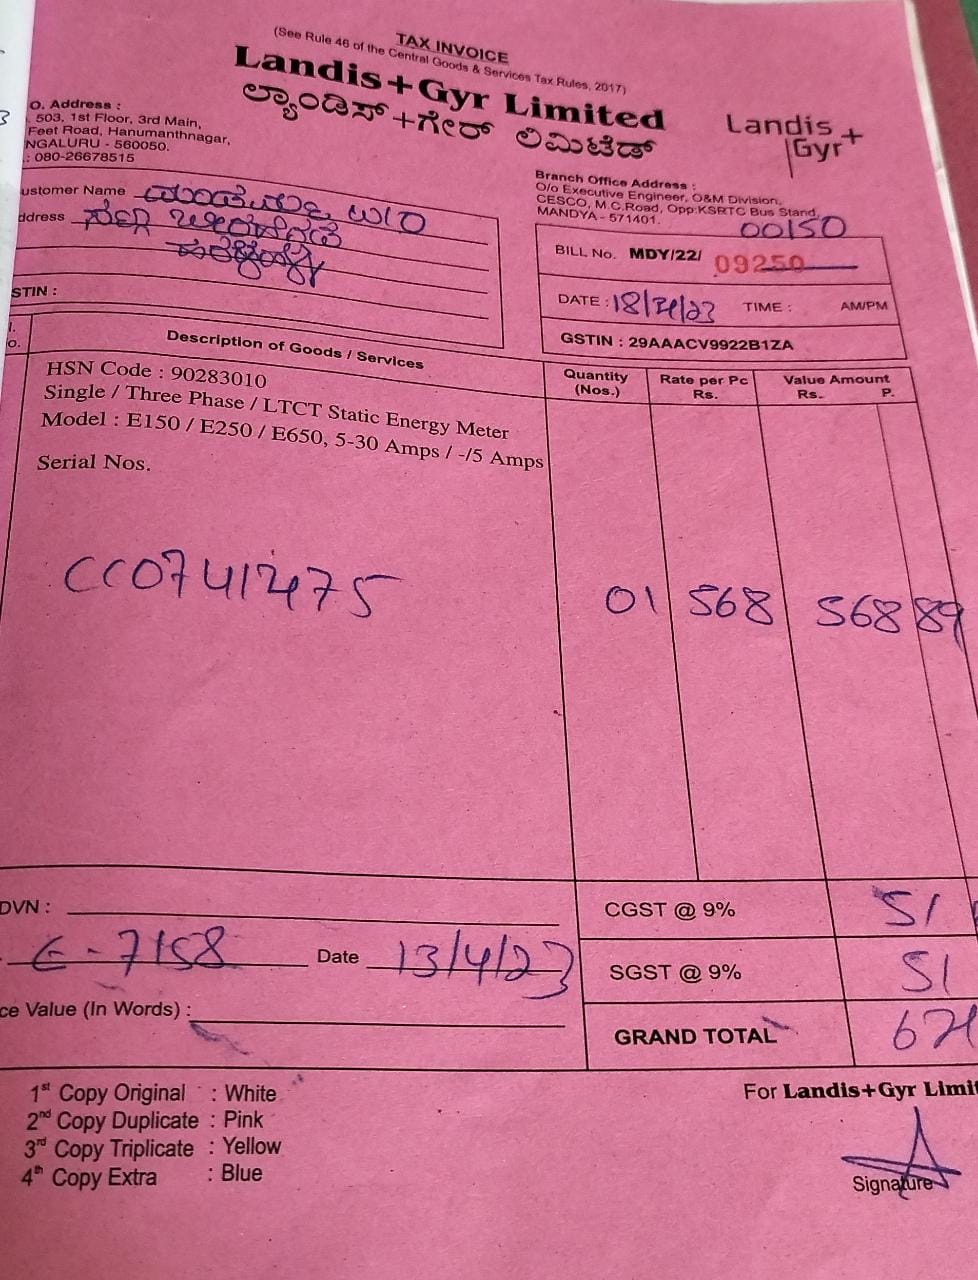 TAX INVOICE
(See Rule 46 of the Central Goods & Services Tax Rules, 2017)
Landis+Gyr Limited
ಲ್ಯಾಂಡಿಸ್+ಗೇರ್ ಲಿಮಿಟೆಡ್
Landis
Gyr+
O. Address :
503, 1st Floor, 3rd Main,
Feet Road, Hanumanthnagar,
NGALURU - 560050.
: 080-26678515
Branch Office Address :
O/o Executive Engineer, O&M Division,
CESCO, M.C.Road, Opp:KSRTC Bus Stand,
MANDYA - 571401.
ustomer Name W/O
ddress
STIN :
00150
BILL No. MDY/22/ 09250
DATE : 18/4/23 TIME : AM/PM
GSTIN : 29AAACV9922B1ZA
Description of Goods / Services
Quantity (Nos.)
Rate per Pc Rs.
Value Amount Rs. P.
HSN Code : 90283010
Single / Three Phase / LTCT Static Energy Meter
Model : E150 / E250 / E650, 5-30 Amps / -/5 Amps
Serial Nos.
CC07412475 01 568 568 89
DVN :
CGST @ 9% 51
E-7158 Date 13/4/23
SGST @ 9% 51
ce Value (In Words) :
GRAND TOTAL 671
1st Copy Original : White
2nd Copy Duplicate : Pink
3rd Copy Triplicate : Yellow
4th Copy Extra : Blue
For Landis+Gyr Limit
Signature